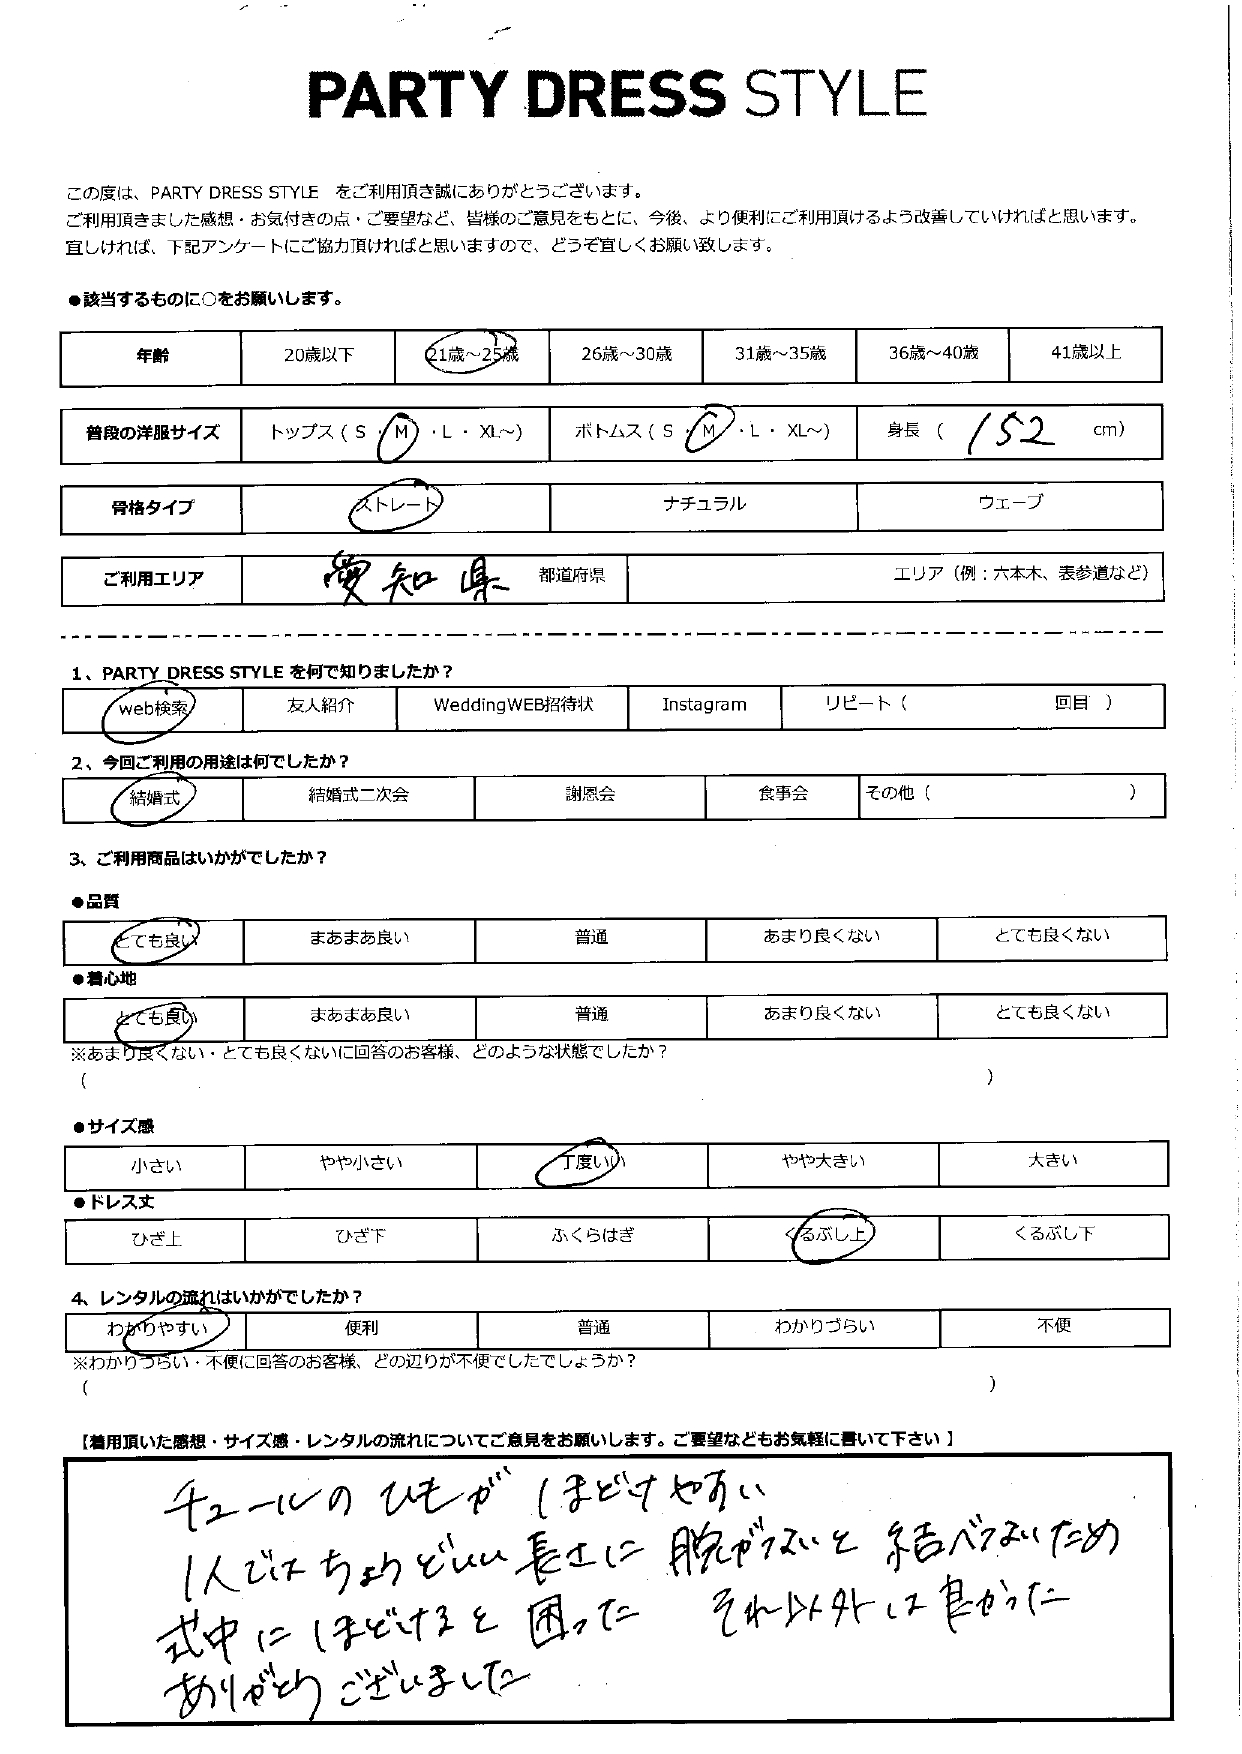 PARTY DRESS STYLE
この度は、PARTY DRESS STYLE をご利用頂き誠にありがとうございます。
ご利用頂きました感想・お気付きの点・ご要望など、皆様のご意見をもとに、今後、より便利にご利用頂けるよう改善していければと思います。
宜しければ、下記アンケートにご協力頂ければと思いますので、どうぞ宜しくお願い致します。
●該当するものに○をお願いします。
年齢 20歳以下 21歳～25歳 26歳～30歳 31歳～35歳 36歳～40歳 41歳以上
普段の洋服サイズ トップス ( S ・ M ・L ・ XL～) ボトムス ( S ・ M ・L ・ XL～) 身長 ( 152 cm)
骨格タイプ ストレート ナチュラル ウェーブ
ご利用エリア 愛知県 都道府県 エリア（例：六本木、表参道など）
1、PARTY DRESS STYLE を何で知りましたか？
web検索 友人紹介 WeddingWEB招待状 Instagram リピート（ 回目 ）
2、今回ご利用の用途は何でしたか？
結婚式 結婚式二次会 謝恩会 食事会 その他（ ）
3、ご利用商品はいかがでしたか？
●品質
とても良い まあまあ良い 普通 あまり良くない とても良くない
●着心地
とても良い まあまあ良い 普通 あまり良くない とても良くない
※あまり良くない・とても良くないに回答のお客様、どのような状態でしたか？
( )
●サイズ感
小さい やや小さい 丁度いい やや大きい 大きい
●ドレス丈
ひざ上 ひざ下 ふくらはぎ くるぶし上 くるぶし下
4、レンタルの流れはいかがでしたか？
わかりやすい 便利 普通 わかりづらい 不便
※わかりづらい・不便に回答のお客様、どの辺りが不便でしたでしょうか？
( )
【着用頂いた感想・サイズ感・レンタルの流れについてご意見をお願いします。ご要望などもお気軽に書いて下さい 】
チュールの ひもが ほどけやすい
1人ではちょうどいい長さに 脱がないと 結べないため
式中にほどけると困った それ以外は良かった
ありがとうございました